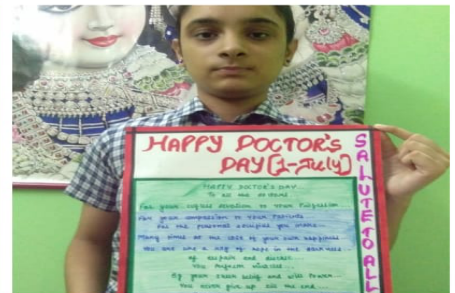 HAPPY DOCTOR'S
DAY (1-July)
SALUTE TO ALL
HAPPY DOCTOR'S DAY
To all the doctors
For your devotion to your Profession
For your compassion to your Patients
For the personal sacrifices you make
Many times at the cost of your own happiness
You are like a ray of hope in the darkness
of despair and disease
You perform miracles...
By your belief and will Power
You never give up till the end